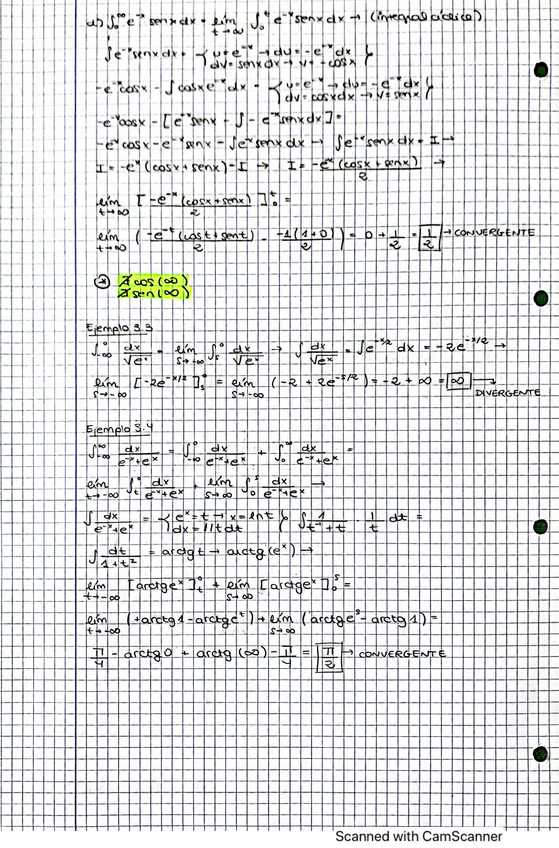 d) ∫₀^∞ e^-x senx dx = lím t→∞ ∫₀^t e^-x senx dx → (integral cíclica)
∫e^-x senx dx = { u = e^-x → du = -e^-x dx / dv = senx dx → v = -cosx }
-e^-x cosx - ∫cosx e^-x dx = { u = e^-x → du = -e^-x dx / dv = cosx dx → v = senx }
-e^-x cosx - [e^-x senx - ∫ - e^-x senx dx] =
-e^-x cosx - e^-x senx - ∫e^-x senx dx → ∫e^-x senx dx = I →
I = -e^-x (cosx + senx) - I → I = -e^-x (cosx + senx) / 2 →
lím t→∞ [ -e^-x (cosx + senx) / 2 ]₀^t =
lím t→∞ ( -e^-t (cost + sent) / 2 - -1(1+0) / 2 ) = 0 + 1/2 = 1/2 → CONVERGENTE
(*) ∄ cos(∞)
∄ sen(∞)
Ejemplo 3.3
∫_-∞^0 dx/√e^x = lím s→-∞ ∫_s^0 dx/√e^x → ∫ dx/√e^x = ∫e^-x/2 dx = -2e^-x/2 →
lím s→-∞ [-2e^-x/2]_s^0 = lím s→-∞ (-2 + 2e^-s/2) = -2 + ∞ = ∞ →
DIVERGENTE
Ejemplo 3.4
∫_-∞^∞ dx/(e^-x+e^x) = ∫_-∞^0 dx/(e^-x+e^x) + ∫_0^∞ dx/(e^-x+e^x) =
lím t→-∞ ∫_t^0 dx/(e^-x+e^x) + lím s→∞ ∫_0^s dx/(e^-x+e^x) →
∫ dx/(e^-x+e^x) = { e^x = t → x = lnt / dx = 1/t dt } ∫ 1/(t^-1+t) · 1/t dt =
∫ dt/(1+t²) = arctgt → arctg(e^x) →
lím t→-∞ [arctge^x]_t^0 + lím s→∞ [arctge^x]_0^s =
lím t→-∞ (+arctg1 - arctge^t) + lím s→∞ (arctge^s - arctg1) =
π/4 - arctg0 + arctg(∞) - π/4 = π/2 → CONVERGENTE
Scanned with CamScanner